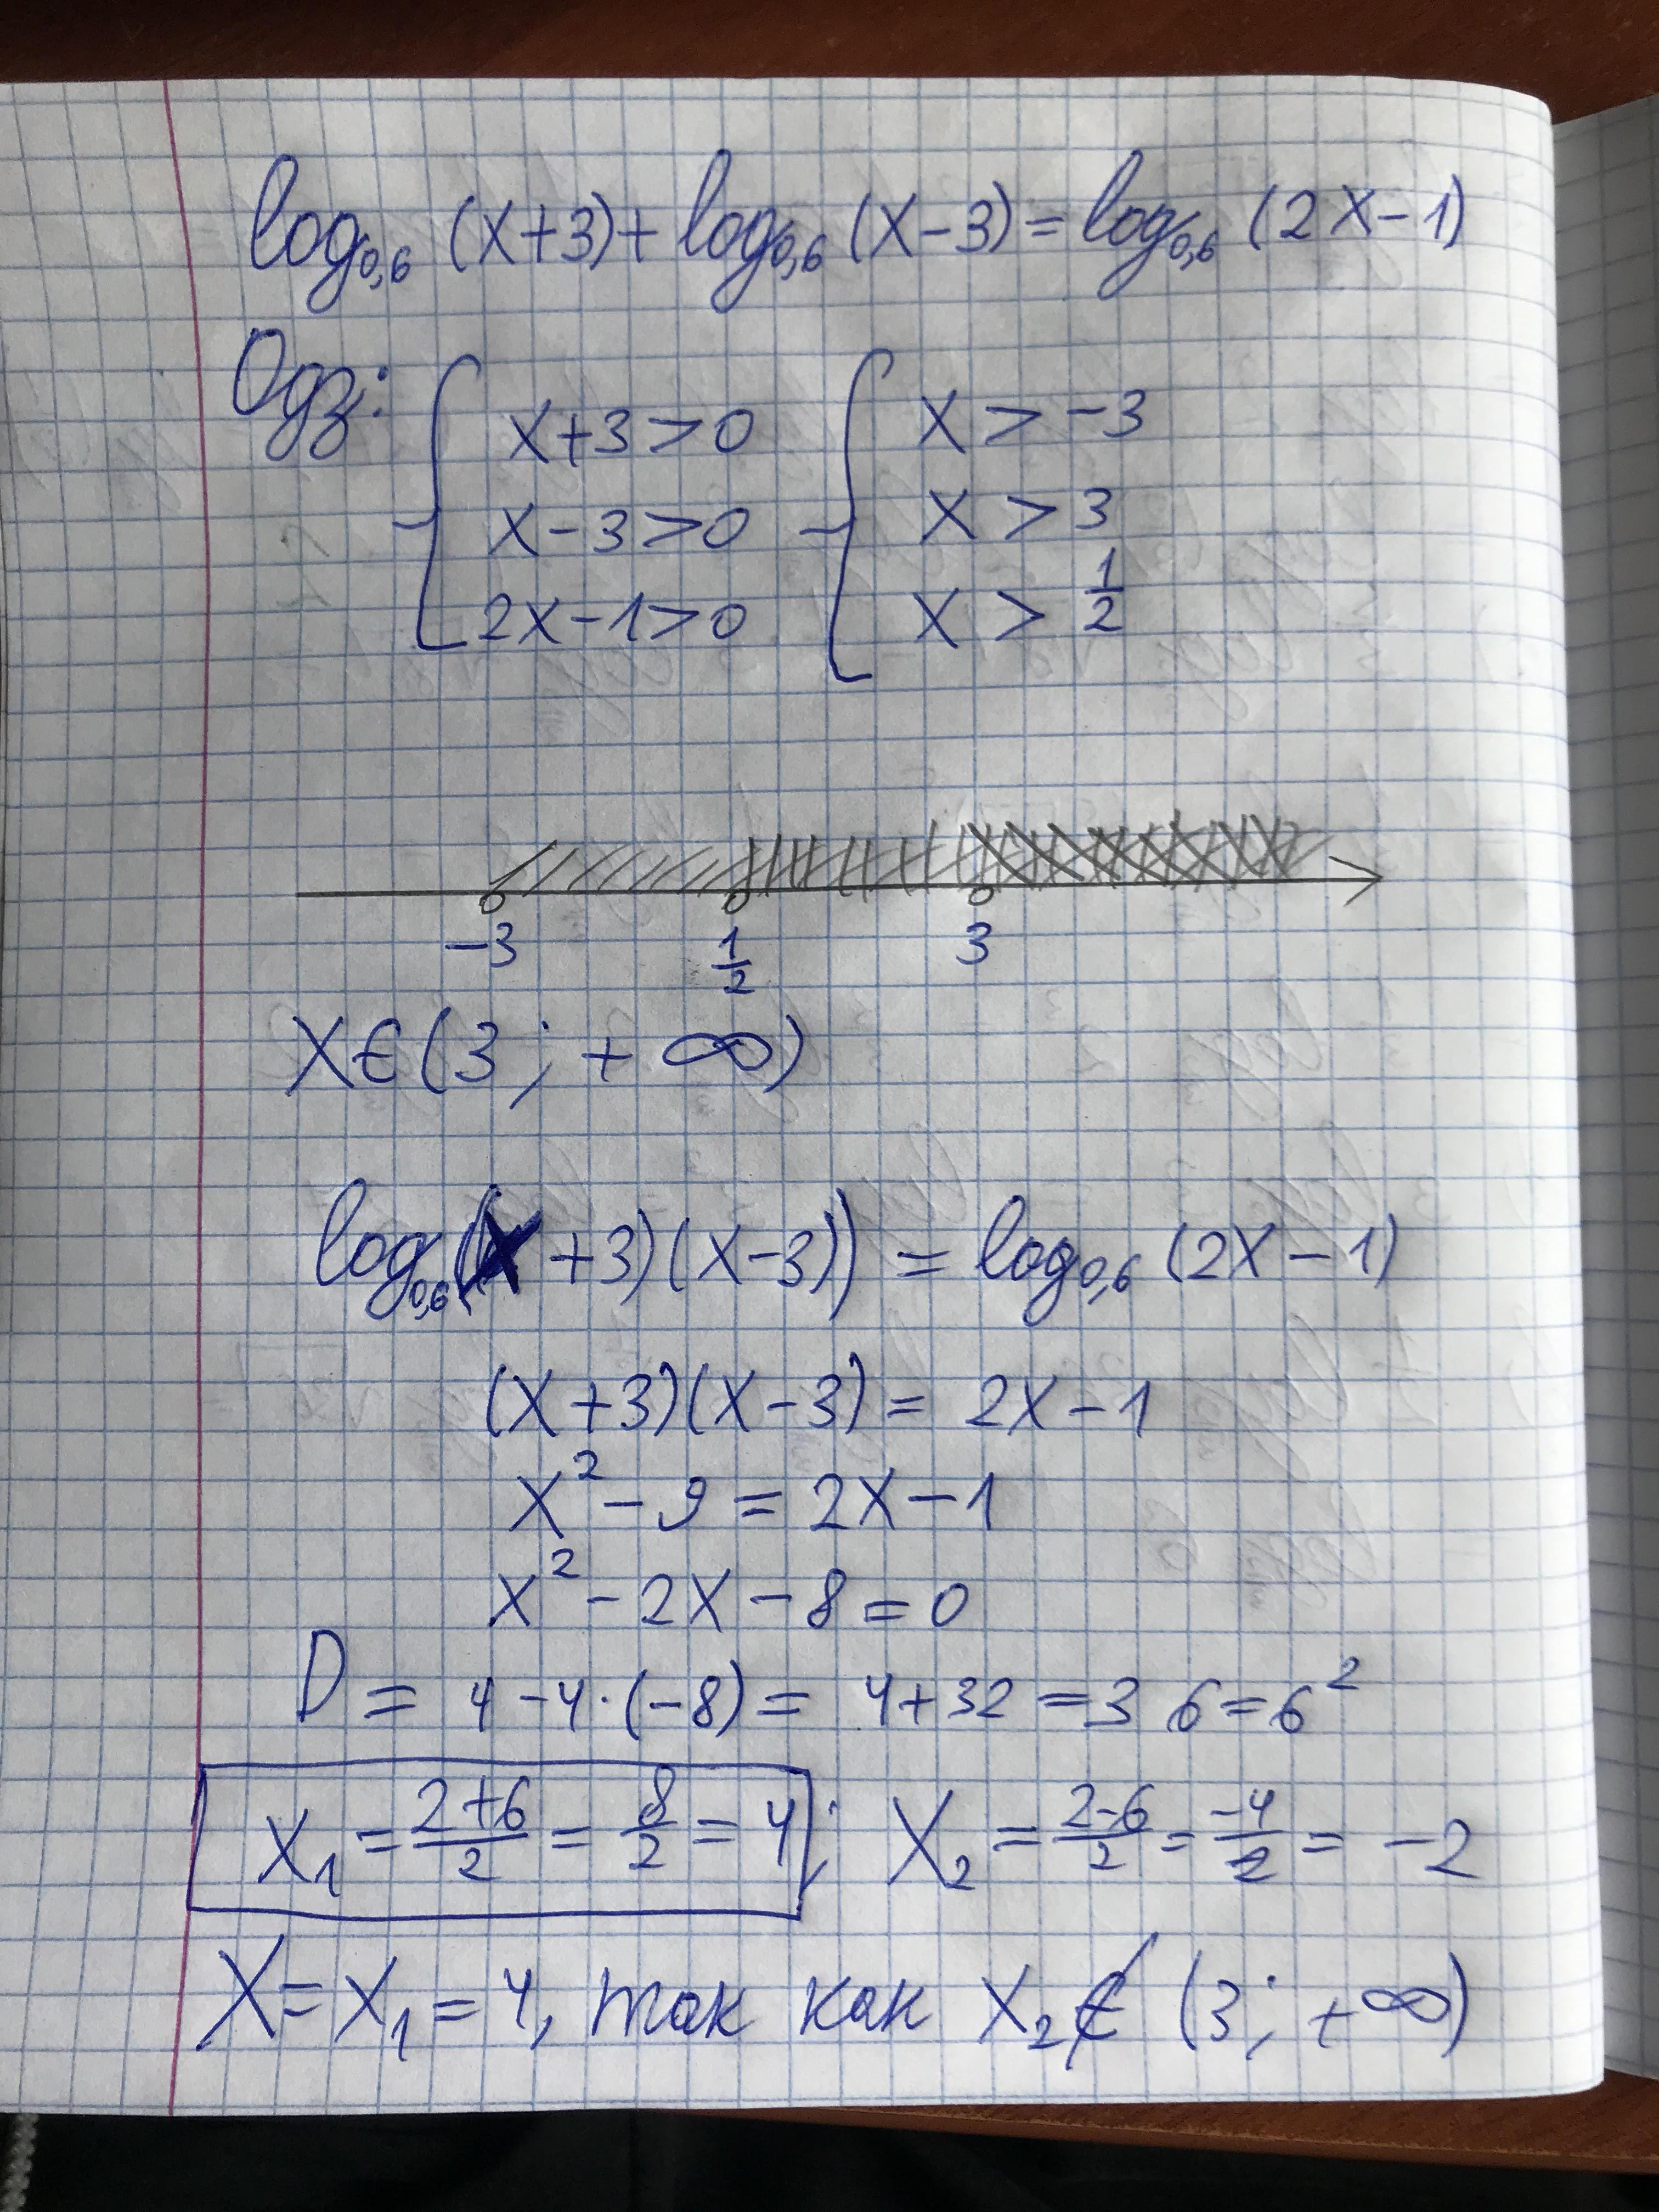 log₀,₆ (x+3) + log₀,₆ (x-3) = log₀,₆ (2x-1)
Одз: { x+3>0 { x > -3
x-3>0 x > 3
2x-1>0 x > 1/2
-3 1/2 3
x∈(3; +∞)
log₀,₆((x+3)(x-3)) = log₀,₆ (2x-1)
(x+3)(x-3) = 2x-1
x²-9 = 2x-1
x²-2x-8=0
D = 4-4·(-8) = 4+32 = 36 = 6²
x₁ = (2+6)/2 = 8/2 = 4; x₂ = (2-6)/2 = -4/2 = -2
x = x₁ = 4, так как x₂ ∉ (3; +∞)